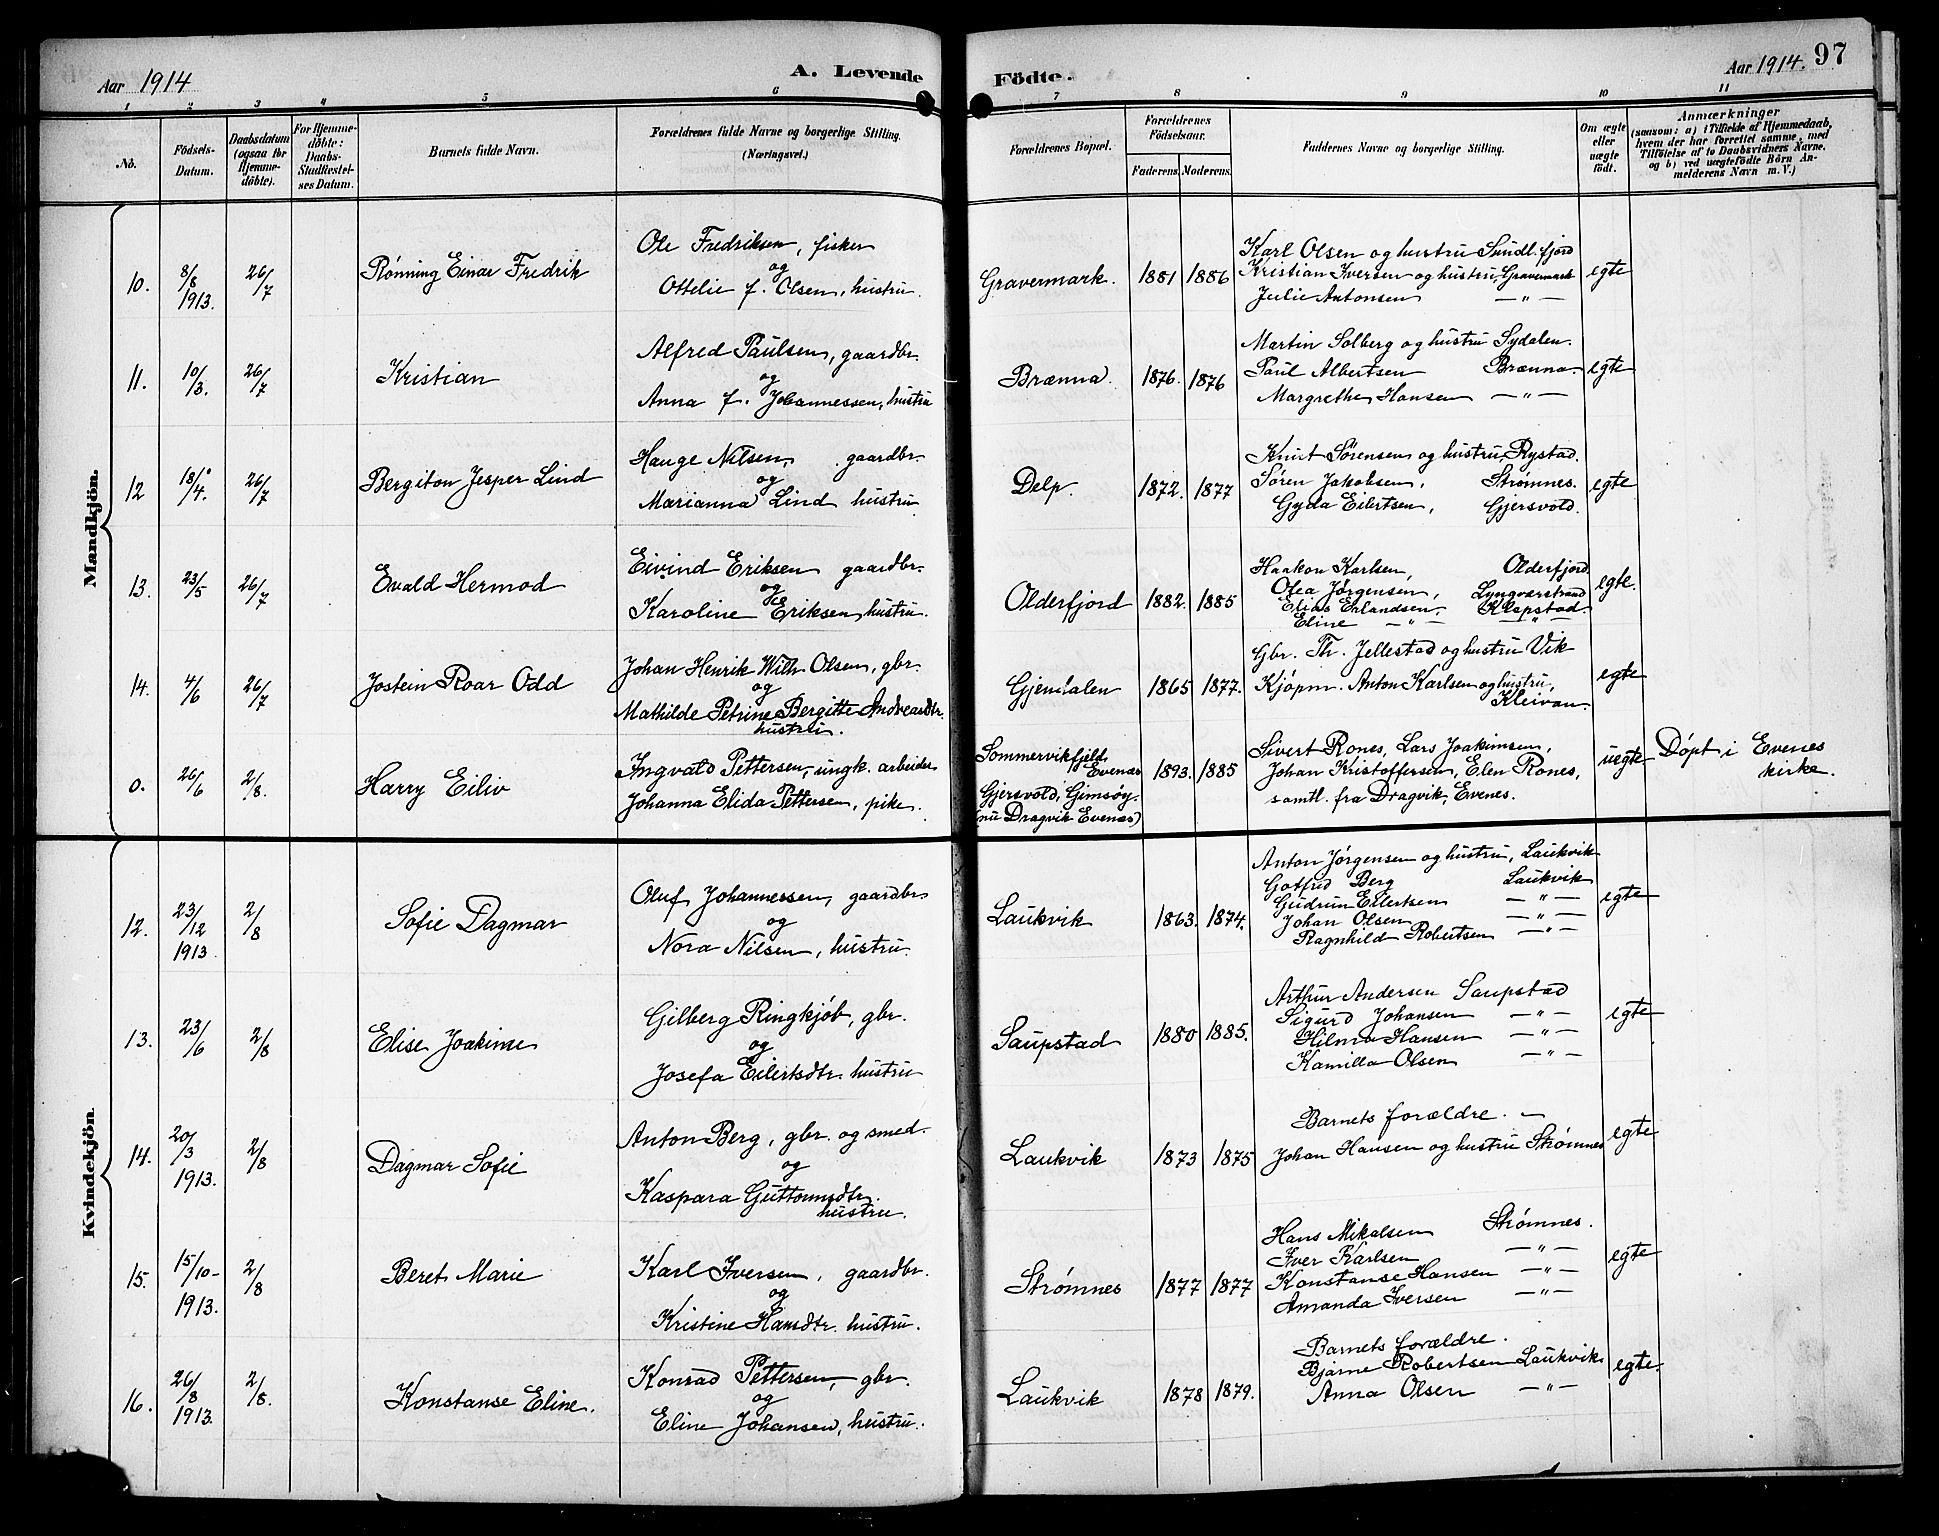 Aar 1914
A. Levende Födte.
Aar 1914. 97
1 2 3 4 5 6 7 8 9 10 11
No.
Födsels-Datum.
Daabsdatum (ogsaa for Hjemmedöbte).
For Hjemmedöbte: Daabs-Stadfæstelses Datum.
Barnets fulde Navn.
Forældrenes fulde Navne og borgerlige Stilling. (Næringsvei.)
Forældrenes Bopæl.
Forældrenes Födselsaar.
Faderens. Moderens.
Faddernes Navne og borgerlige Stilling.
Om ægte eller uægte födt.
Anmærkninger
(saasom: a) i Tilfælde af Hjemmedaab,
hvem der har forrettet samme, med
Tilföielse af to Daabsvidners Navne,
og b) ved uægtefödte Börn An-
melderens Navn m. V.)
Mandkjön.
10. 8/8 1913. 26/7 Rønning Einar Fredrik
Ole Fredriksen, fisker
og
Ottelie f. Olsen, hustru.
Gravermark. 1881 1886
Karl Olsen og hustru Sundl.fjord
Kristian Iversen og hustru, Gravermark
Julie Antonsen — " —
egte
11. 10/3. 26/7 Kristian
Alfred Paulsen, gaardbr.
og
Anna f. Johannessen, hustru
Brænna. 1876. 1876
Martin Solberg og hustru Sydalen.
Paul Albertsen Brænna.
Margrethe Hansen — " —
egte
12 18/4. 26/7 Bergiton Jesper Lind
Hauge Nilsen, gaardbr.
og
Marianna Lind hustru
Delp. 1872. 1877
Knut Sörensen og hustru, Rystad.
Sören Jakobsen, Strømnes.
Gyda Eilertsen, Gjersvold.
egte
13. 23/5 26/7 Evald Hermod
Eivind Eriksen gaardbr.
og
Karoline Eriksen, hustru.
Olderfjord 1882. 1885
Haakon Karlsen, Olderfjord
Olea Jørgensen, Lyngværstrand
Elias Erlandsen. Klepstad.
Eline — " — — " —
egte.
14. 4/6 26/7 Jostein Roar Odd
Johan Henrik Wilh. Olsen, gbr.
og
Mathilde Petrine Bergitte Andreasdtr.
hustru.
Gjendalen 1865 1877.
Gbr. Th. Jellestad og hustru Vik
Kjöpm. Anton Karlsen og hustru,
Kleivan.
egte
0. 26/6 2/8. Harry Eiliv
Ingvald Pettersen, ungk. arbeider
Johanna Elida Pettersen, pike.
Sommervikfjeld, Evenæs
Gjersvold, Gimsöy.
(nu Dragvik Evenæs)
1893. 1885
Sivert Rones, Lars Joakimsen,
Johan Kristoffersen, Elen Rones,
samtl. fra Dragvik, Evenes.
uegte
Döpt i Evenes
kirke.
Kvindekjön.
12. 23/12 1913. 2/8 Sofie Dagmar
Oluf Johannessen, gaardbr.
og
Nora Nilsen, hustru.
Laukvik 1863. 1874.
Anton Jörgensen og hustru, Laukvik
Gotfred Berg Laukvik
Gudrun Eilertsen — " —
Johan Olsen — " —
Ragnhild Robertsen — " —
egte
13. 23/6 2/8 Elise Joakime
Gilberg Ringkjöb, gbr.
og
Josefa Eilertsdtr. hustru
Saupstad 1880 1885.
Arthur Andersen Saupstad
Sigurd Johansen — " —
Hilma Hansen — " —
Kamilla Olsen — " —
egte
14. 20/3 1913. 2/8 Dagmar Sofie
Anton Berg, gbr. og smed.
og
Kaspara Guttormsdtr.
hustru.
Laukvik 1873 1875
Barnets forældre. —
Johan Hansen og hustru Strømnes
egte
15. 15/10- 1913. 2/8 Beret Marie
Karl Iversen, gaardbr.
og
Kristine Hansdtr. hustru.
Strømnes 1877 1877
Hans Mikalsen Strømnes.
Iver Karlsen — " —
Konstanse Hansen — " —
Amanda Iversen — " —
egte
16. 26/8 1913. 2/8. Konstanse Eline.
Konrad Pettersen, gbr.
og
Eline Johansen, hustru.
Laukvik 1878 1879.
Barnets forældre.
Bjarne Robertsen Laukvik
Anna Olsen — " —
egte.